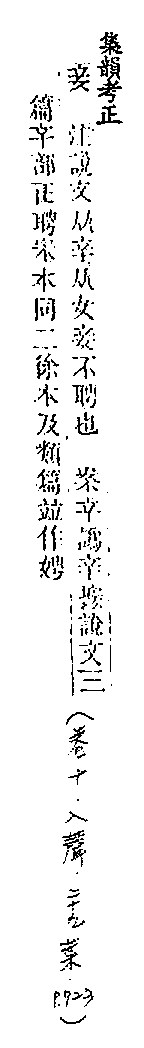 集韻考正
妾 注說文从䇂从女妾不聘也 案䇂譌辛據說文三
篇䇂部正聘宋本同二徐本及類篇竝作娉
(卷十.入聲.二十九葉.P.923)